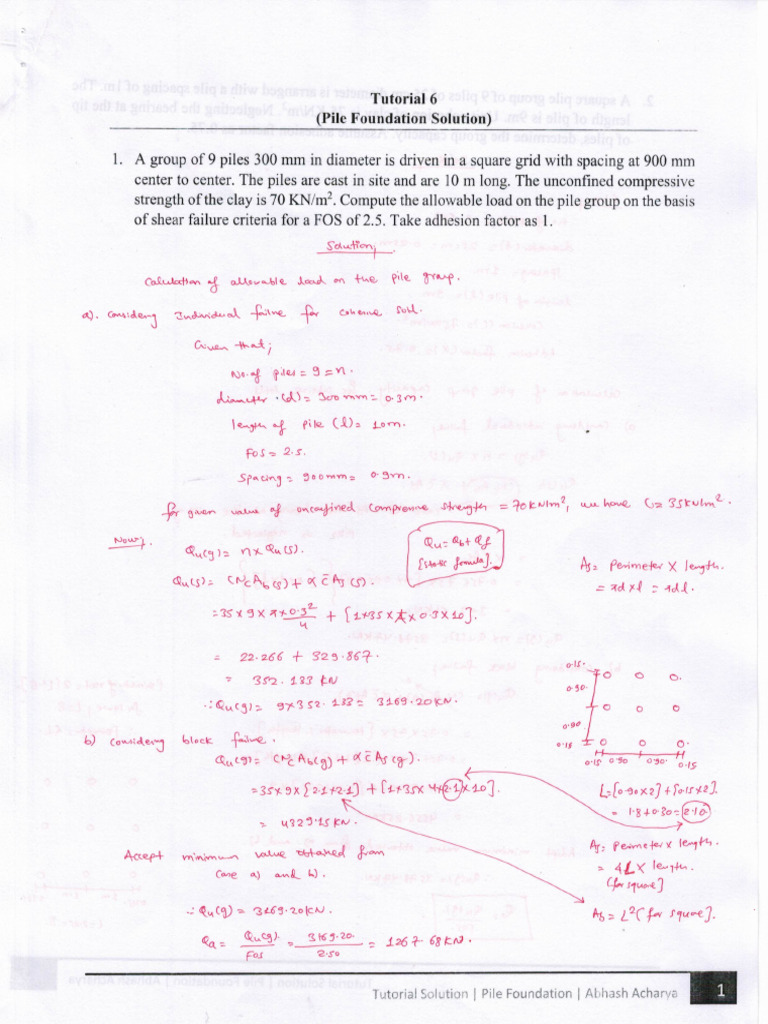 Tutorial 6
(Pile Foundation Solution)
1. A group of 9 piles 300 mm in diameter is driven in a square grid with spacing at 900 mm
center to center. The piles are cast in site and are 10 m long. The unconfined compressive
strength of the clay is 70 KN/m². Compute the allowable load on the pile group on the basis
of shear failure criteria for a FOS of 2.5. Take adhesion factor as 1.
Solution,
Calculation of allowable load on the pile group.
a). Considering Individual failure for cohesive soil.
Given that;
No. of piles = 9 = n.
diameter (d) = 300 mm = 0.3m.
length of pile (l) = 10m.
FOS = 2.5.
Spacing = 900mm = 0.9m.
for given value of unconfined compressive strength = 70kN/m², we have C = 35kN/m².
Now,
Qu(g) = n x Qu(s).
Qu = Qb + Qf
[static formula].
As = Perimeter x length.
= πd x l = πdl.
Qu(s) = CNcAb(s) + α c̄ As(s).
= 35 x 9 x π x 0.3²/4 + [1 x 35 x π x 0.3 x 10].
= 22.266 + 329.867.
= 352.133 kN
∴ Qu(g) = 9 x 352.133 = 3169.20 kN.
0.15
0.90
0.90
0.15
0.15 0.90 0.90 0.15
b) Considering block failure.
Qu(g) = CNcAb(g) + α c̄ As(g).
= 35 x 9 x [2.1 x 2.1] + [1 x 35 x 4 x 2.1 x 10].
= 4329.15 kN
L = [0.90 x 2] + [0.15 x 2]
= 1.8 + 0.30 = 2.10
As = Perimeter x length.
= 4L x length.
(for square]
Ab = L² [for square].
Accept minimum value obtained from
case a) and b).
∴ Qu(g) = 3169.20 kN.
Qa = Qu(g)/FOS = 3169.20/2.50 = 1267 68 kN.
Tutorial Solution | Pile Foundation | Abhash Acharya 1